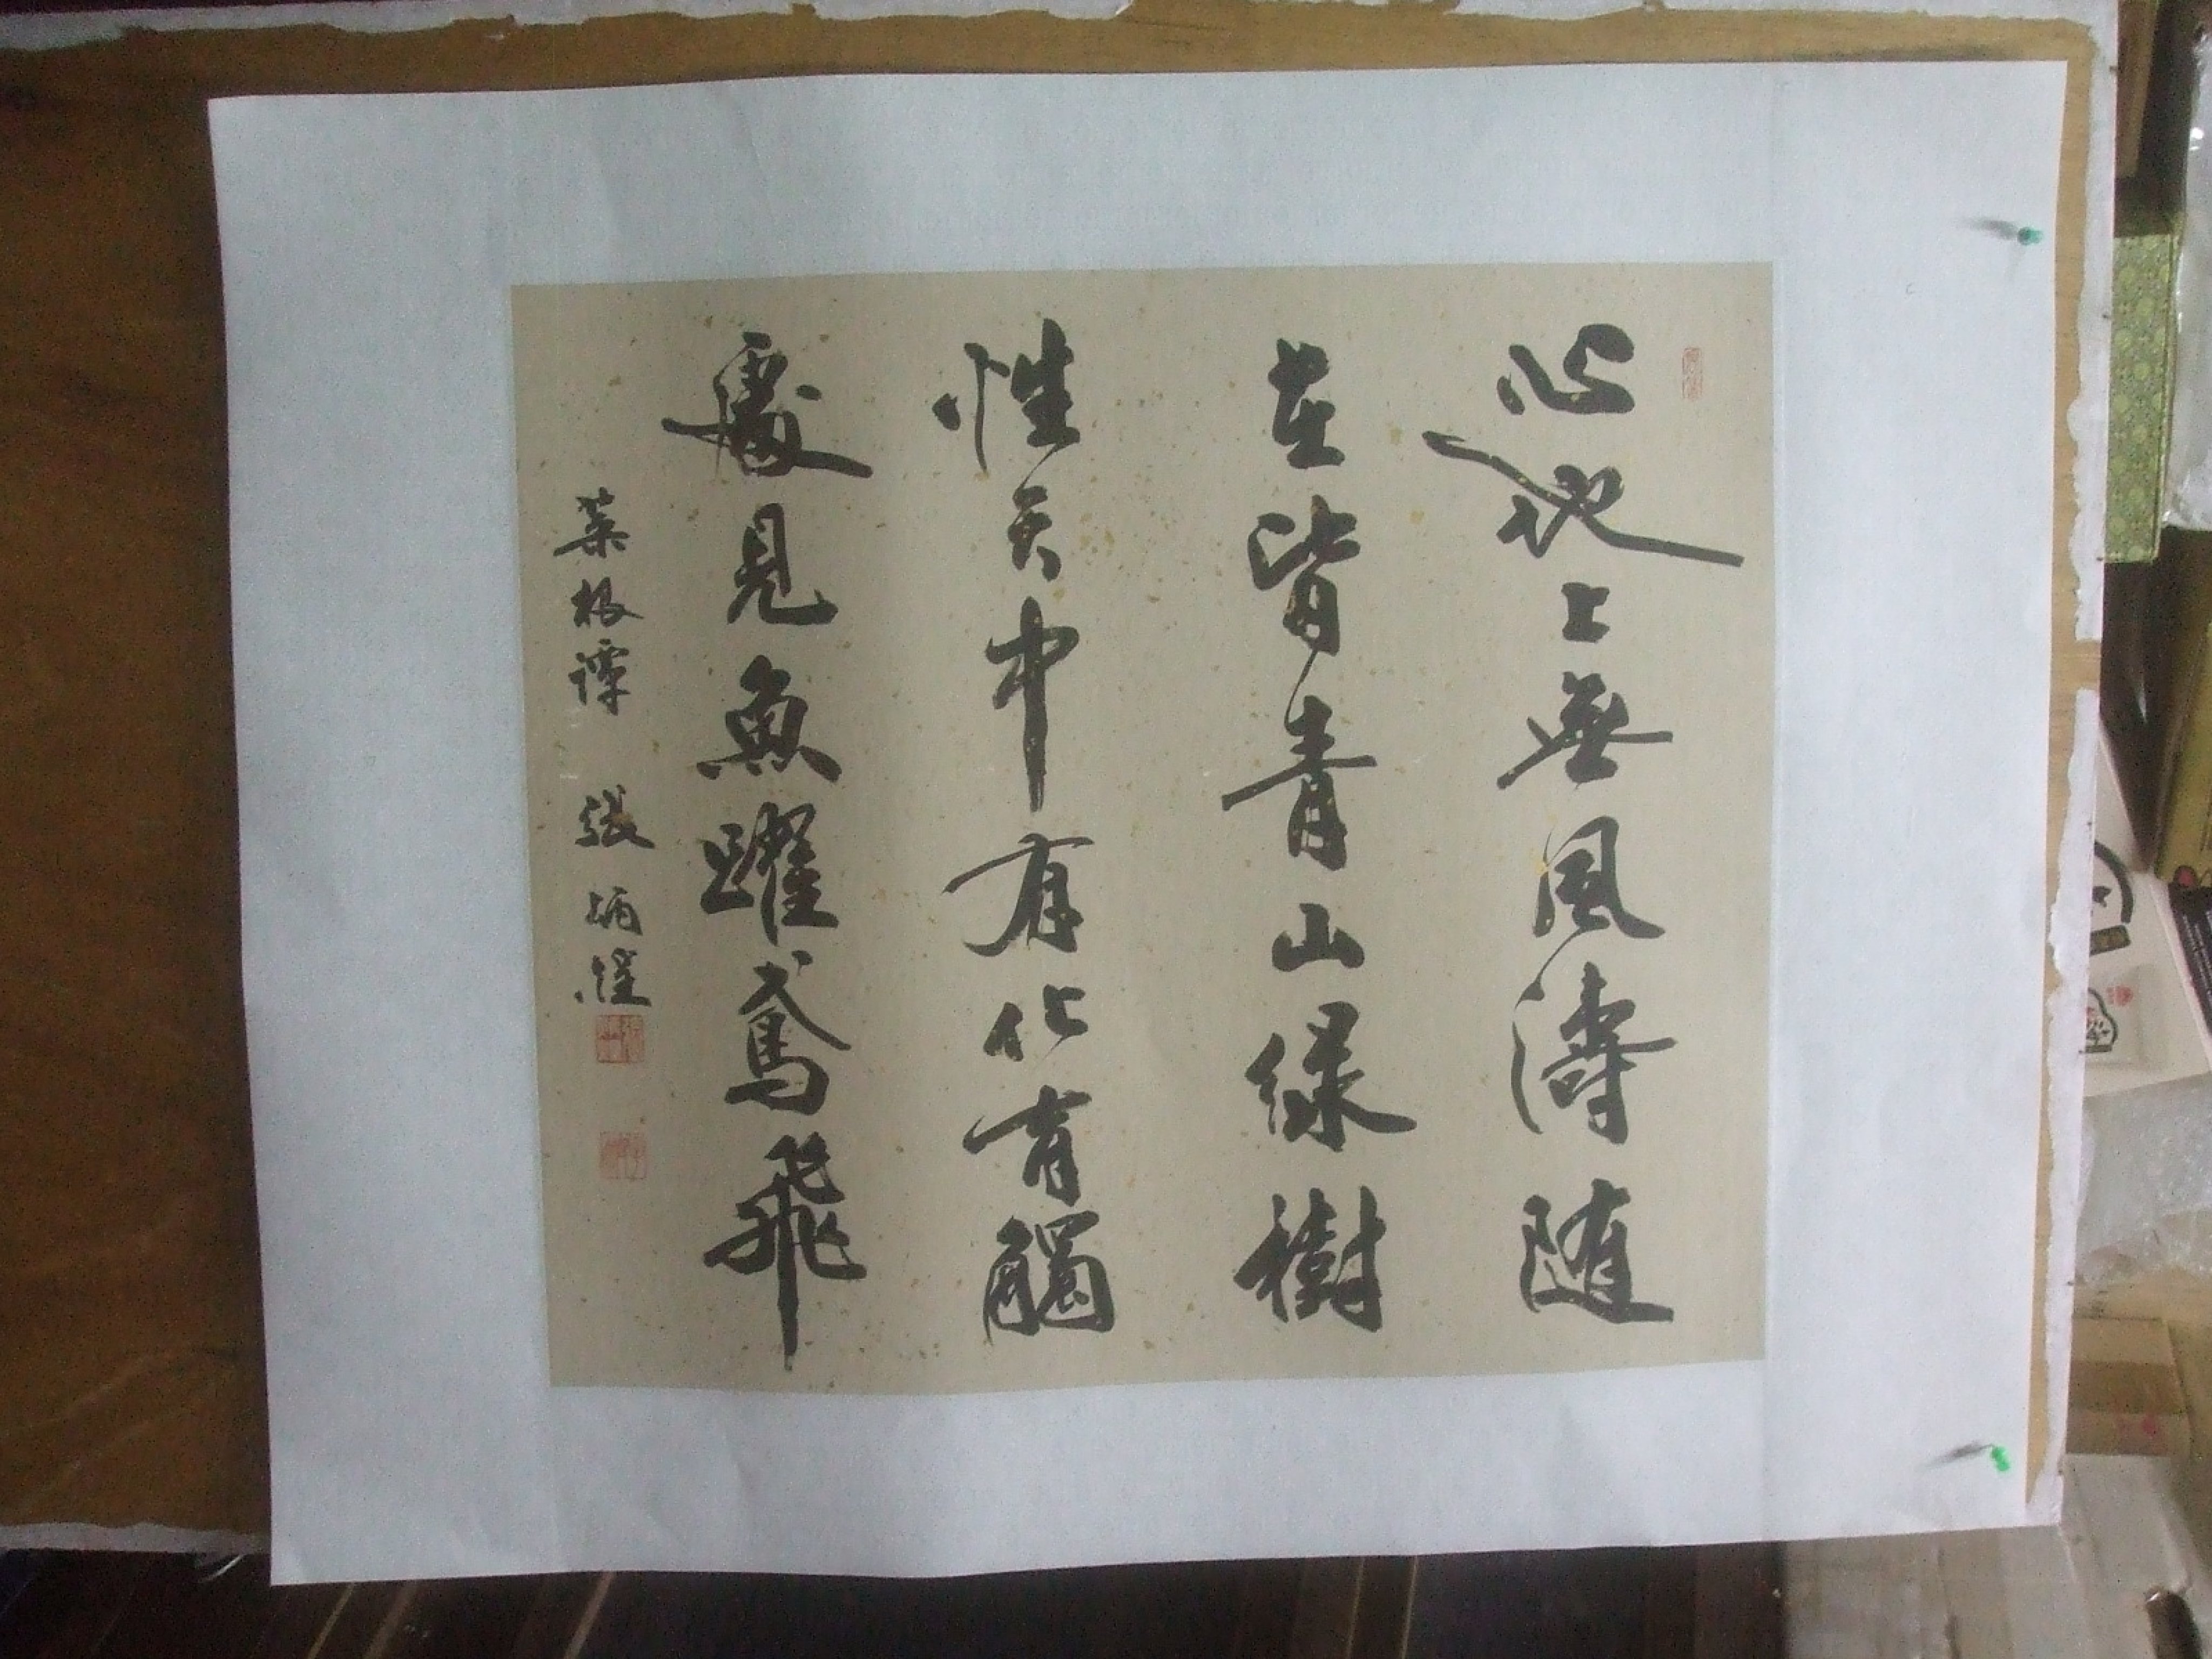 心地上無風濤随
在皆青山緑樹
性天中有化育觸
處見魚躍鳶飛
菜根譚 張炳煌